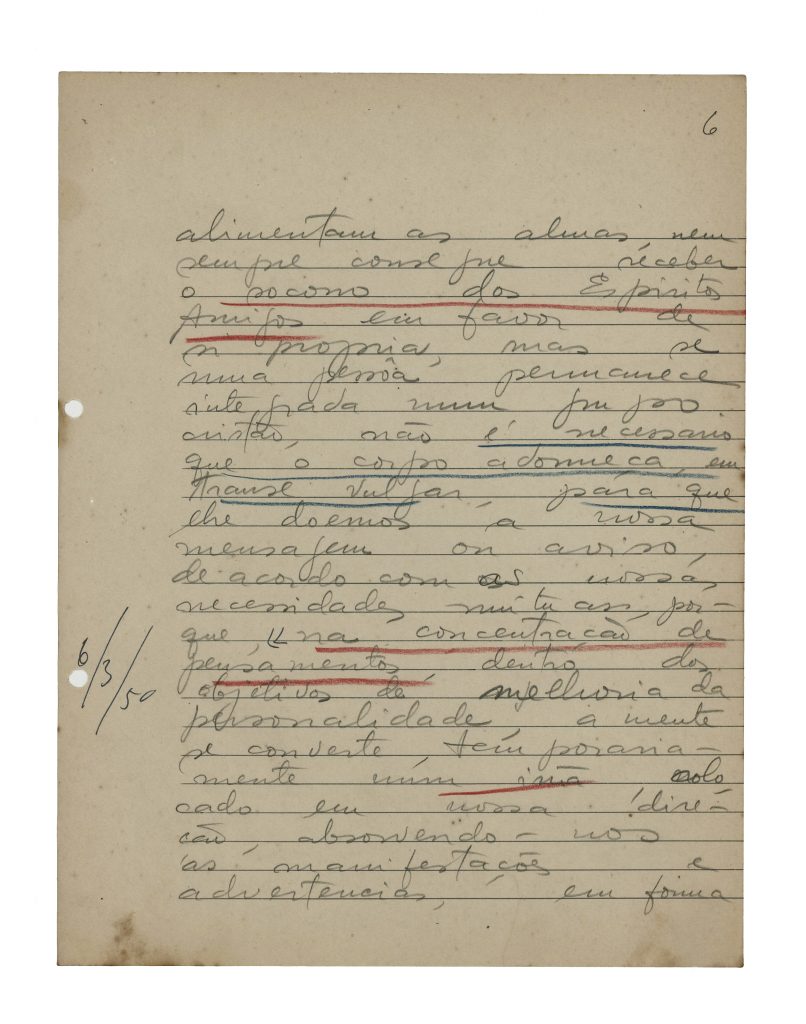 6
alimentam as almas, nem
sempre consegue receber
o socorro dos Espiritos
Amigos em favor de
si propria, mas se
uma pessôa permanece
integrada num grupo
cristão, não é necessario
que o corpo adormeça, em
transe vulgar, para que
lhe doemos a nossa
mensagem ou aviso,
de acordo com as nossas
necessidades mútuas, por-
que, na concentração de
pensamentos, dentro dos
objetivos de melhoria da
personalidade, a mente
se converte, temporaria-
mente num imã colo
cado em nossa dire-
ção, absorvendo-nos
as manifestações e
advertencias, em forma
6/3/50